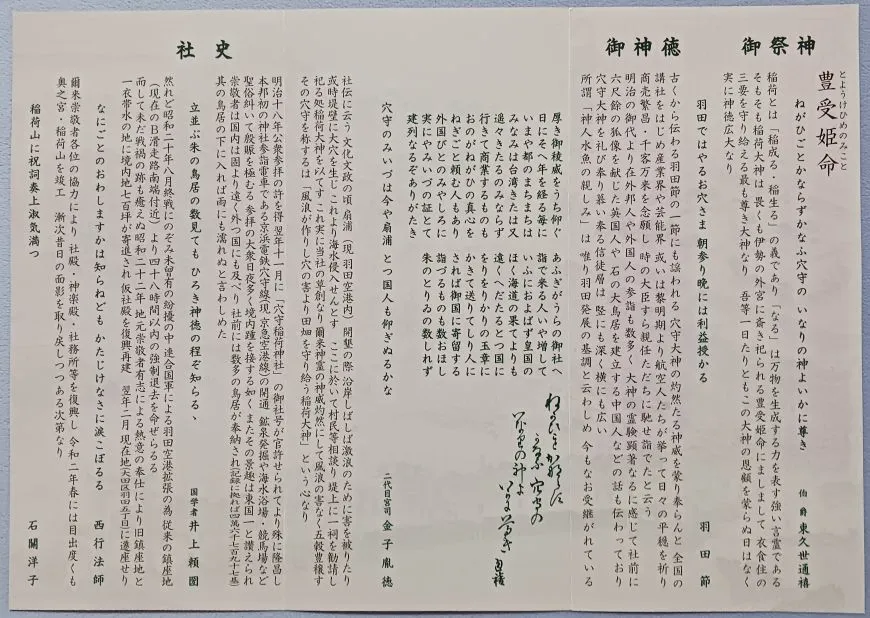 御祭神
とようけひめのみこと
豊受姫命
ねがひごとかならずかなふ穴守の いなりの神よいかに尊き
伯爵 東久世通禧
稲荷とは「稲成る・稲生る」の義であり「なる」は万物を生成する力を表す強い言霊である
そもそも稲荷大神は 畏くも伊勢の外宮に斎き祀られる豊受姫命にましまして 衣食住の
三要を守り給える最も尊き大神なり 吾等一日たりともこの大神の恩顧を蒙らぬ日はなく
実に神徳広大なり
御神徳
羽田ではやるお穴さま 朝参り晩には利益授かる
羽田節
古くから伝わる羽田節の一節にも謡われる 穴守大神の灼然たる神威を蒙り奉らんと 全国の
講社をはじめ産業界や芸能界 或いは黎明期より航空人たちが挙って日々の平穏を祈り
商売繁昌・千客万来を念願し 時の大臣すら親任ただちに馳せ詣でたと云う
明治の御代より在外邦人や外国人の参詣も数多く 大神の霊験顕著なるに感じて社前に
六尺餘の狐像を献じた英国人や 石の大鳥居を建立する中国人などの話も伝わっており
穴守大神を礼び奉り慕い奉る信徒層は 竪にも深く横にも広い
所謂「神人水魚の親しみ」は 唯り羽田発展の基調と云わしめ 今もなお受継がれている
ねがひごとかならず
かなふ穴守の
いなりの神よ
いかに尊き
通禧
あふぎがうらの御社へ
詣で来る人いや増して
いふにおよばず皇国の
ほく海道の果てよりも
遠くへだたるとつ国に
をりをりかりの玉章に
かきて送りてしり人に
されば御国に寄留する
詣づるものも数おほし
朱のとりゐの数しれず
厚き御稜威をうち仰ぐ
日にそへ年を経る毎に
いまや都のまちまちは
みなみは台湾きたは又
遥々きたるのみならず
行きて商業するものも
おのがねがひの真心を
ねぎごと頼む人もあり
外国びとのみやしろに
実にやみいづの証とて
建列なるぞありがたき
穴守のみいづは今や扇浦 とつ国人も仰ぎぬるかな
二代目宮司 金子胤徳
社史
社伝に云う 文化文政の頃 扇浦(現 羽田空港内)開墾の際 沿岸しばしば激浪のために害を被りたり
或時堤壁に大穴を生じ これより海水侵入せんとす ここに於いて村民等相談り堤上に一祠を勧請し
祀る処稲荷大神を以てす これ実に当社の草創なり 爾来神霊の神威灼然にして風浪の害なく五穀豊穣す
その穴守を称するは「風浪が作りし穴の害より田畑を守り給う稲荷大神」という心なり
明治十八年公衆参拝の許を得 翌年十一月に「穴守稲荷神社」の御社号が官許せられてより殊に隆昌し
本邦初の神社参詣電車である京浜電鉄穴守線(現京急空港線)の開通 鉱泉発掘や海水浴場・競馬場など
聖俗糾いて殷賑を極むる 参拝の大衆日夜多く境内踵を接する如く またその景趣は東国一と讃えられ
崇敬者は国内は固より遠く外つ国にも及べり 社前には数多の鳥居が奉納され(記録に拠れば四萬六千七百九十七基)
其の鳥居の下に入れば雨にも濡れぬと言わしめた
立並ぶ朱の鳥居の数見ても ひろき神徳の程ぞ知らるゝ
国学者 井上頼圀
然れど昭和二十年八月終戦にのぞみ未曽有の紛擾の中 連合国軍による羽田空港拡張の為 従来の鎮座地
(現在のB滑走路南端付近)より四十八時間以内の強制退去を命ぜらるる
而して未だ戦禍の跡も癒えぬ昭和二十二年 地元崇敬者有志による熱意の奉仕により旧鎮座地と
一衣帯水の地に境内地七百坪が寄進され 仮社殿を復興再建 翌年二月 現在地(大田区羽田五丁目)に遷座せり
なにごとのおわしますかは知らねども かたじけなさに涙こぼるる
西行法師
爾来崇敬者各位の協力により 社殿・神楽殿・社務所等を復興し 令和二年春には目出度くも
奥之宮・稲荷山を竣工 漸次昔日の面影を取り戻しつつある次第なり
稲荷山に祝詞奏上淑気満つ
石關洋子